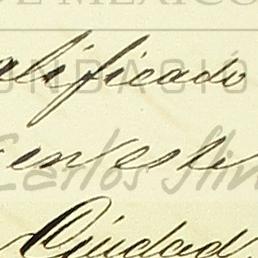 DE MÉXICO
alificado
FUNDACIÓN
en este
Carlos Slim
Ciudad